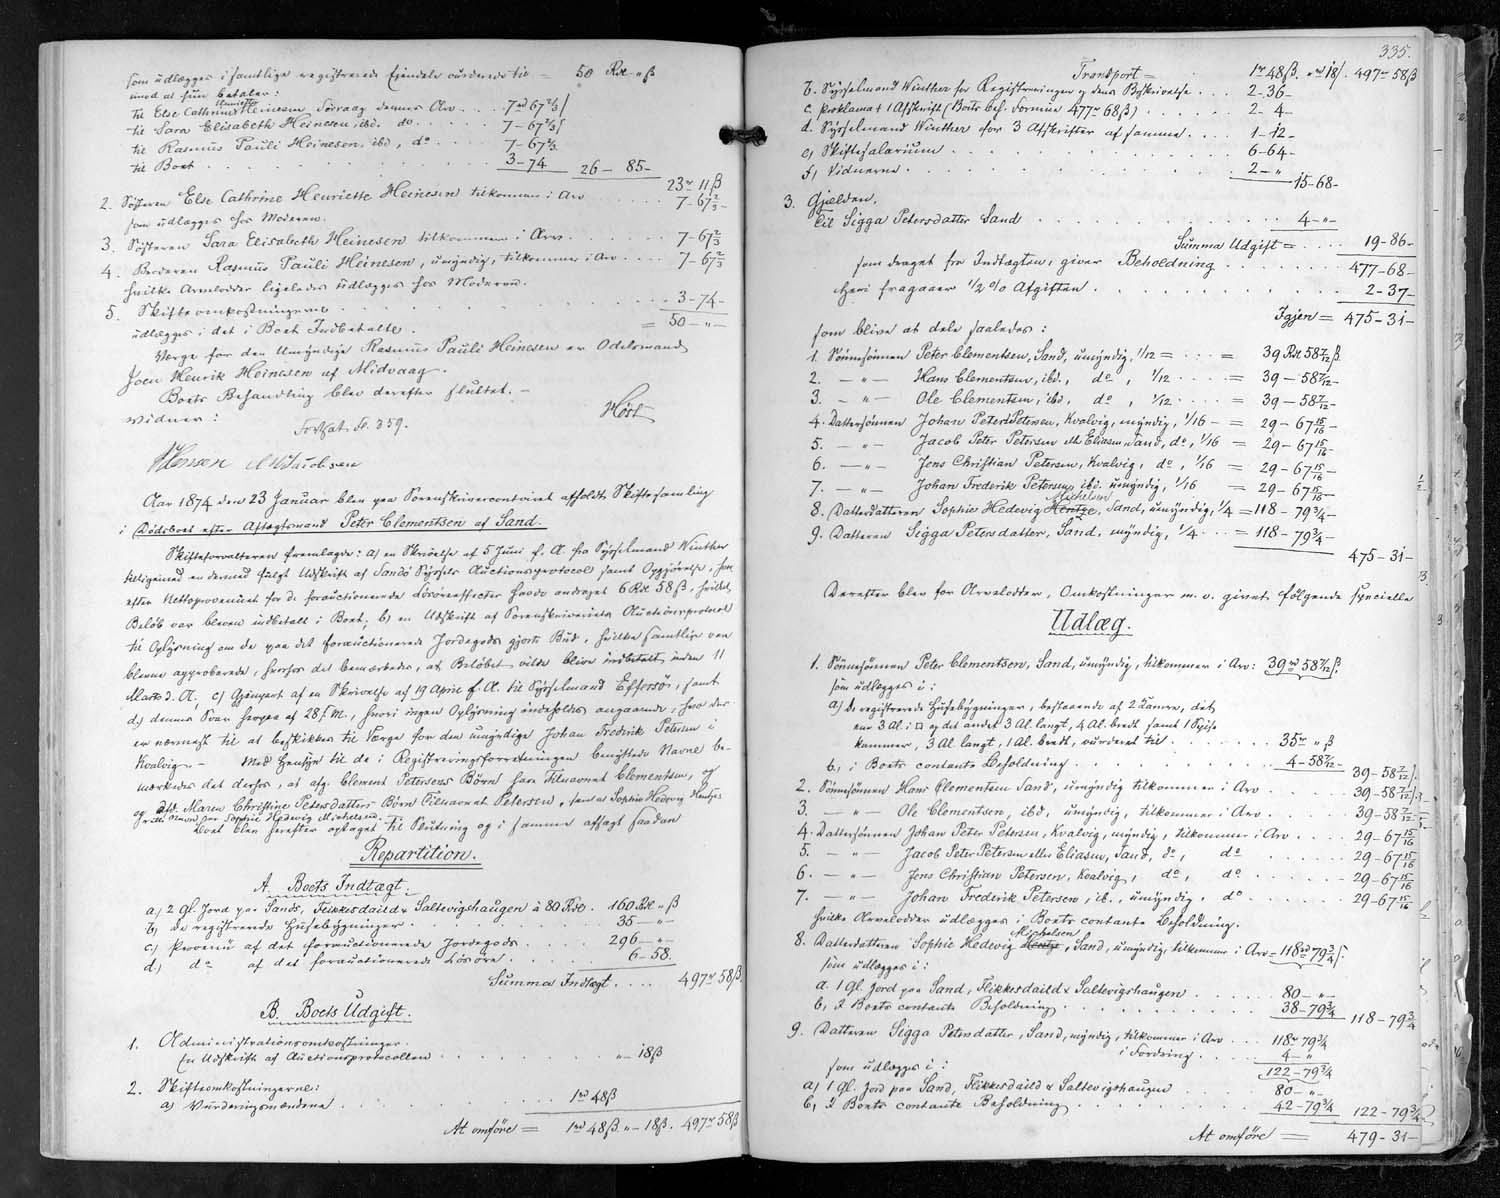 som udlægges i samtlige registrerede Ejendele vurderede til = 50 Rdl. " ß
imod at hun betaler:
til Else Cathrine Henriette Heinesen, Sørvaag dennes Arv . . . 7 rd 67 2/3 ß
til Sara Elisabeth Heinesen, ibd. do . . . 7 - 67 2/3 ß
til Rasmus Pauli Heinesen, ibd, do . . . 7 - 67 2/3
til Boet . . . 3 - 74 26 - 85 -
23 rd 11 ß
2. Søsteren Else Cathrine Henriette Heinesen tilkommer i Arv . . . 7 - 67 2/3 -
som udlægges hos Moderen.
3. Søsteren Sara Elisabeth Heinesen tilkommer i Arv . . . 7 - 67 2/3
4. Broderen Rasmus Pauli Heinesen, umyndig, tilkommer i Arv . . . 7 - 67 2/3
hvilke Arvelodder ligeledes udlægges hos Moderen.
5. Skifteomkostningerne . . . 3 - 74 -
udlægges i det i Boet Indbetalte. = 50 - " -
Værge for den Umyndige Rasmus Pauli Heinesen er Odelsmand
Joen Henrik Heinesen af Midvaag.
Boets Behandling blev derefter sluttet. -
Vidner: Høst
Fortsat Fo. 359.
HJensen AMJacobsen
Aar 1874 den 23 Januar blev paa Sorenskrivercontoiret afholdt Skiftesamling
i Dødsboet efter Aftægtsmand Peter Clementsen af Sand.
Skifteforvalteren fremlagde: a) en Skrivelse af 5 Juni f. A. fra Sysselmand Winther
tilligemed en dermed fulgt Udskrift af Sandø Syssels Auctionsprotocol samt Opgjørelse, hvor-
efter Nettoprovenuet for de forauctionerede Løsøreeffecter havde andraget 6 Rdl 58 ß, hvilket
Beløb var bleven indbetalt i Boet; b) en Udskrift af Sorenskriveriets Auctionsprotocol
til Oplysning om de paa det forauctionerede Jordegods gjorte Bud, hvilke samtlige vare
blevne approberede, hvorfor det bemærkedes, at Beløbet vilde blive indbetalt inden 11
Marts d. A. c) Gjenpart af en Skrivelse af 19 April f. A. til Sysselmand Effersøe, samt
d) dennes Svar herpaa af 28 f. M., hvori ingen Oplysning indeholdes angaaende, hvo der
er nærmest til at beskikkes til Værge for den umyndige Johan Fredrik Petersen i
Kvalvig. - Med Hensyn til de i Registreringsforretningen benyttede Navne be-
mærkedes det derhos, at afg. Clement Petersens Børn have Tilnavnet Clementsen, og
og afd. Maren Christine Petersdatters Børn Tilnavnet Petersen, samt at Sophie Hedevig Hentzes
rette Navn er Sophie Hedevig Michelsen.
Boet blev herefter optaget til Slutning og i samme affagt saadan
Repartition.
A. Boets Indtægt.
a) 2 Gl. Jord paa Sands, Flikkesdaild & Saltevigshaugen à 80 Rdl. . 160 Rdl " ß
b) de registrerede Husebygninger . . . 35 - " -
c) Provenu af det forauctionerede Jordegods . . . 296 - " -
d) do af det forauctionerede Løsøre . . . 6 - 58.
Summa Indtægt . . . . 497 rd 58 ß
B. Boets Udgift.
1. Administrationsomkostninger.
En Udskrift af Auctionsprotocollen . . . " - 18 ß
2. Skifteomkostningerne:
a) Vurderingsmændene . . . 1 rd 48 ß
At omføre = 1 rd 48 ß " - 18 ß. 497 rd 58 ß
335.
Transport = 1 rd 48 ß. " rd 18 ß. 497 rd 58 ß
b. Sysselmand Winther for Registreringen og dens Beskrivelse . . . 2 - 36 -
c. Proklama + 1 Afskrift (Boets beh. Formue 477 rd 68 ß) . . . 2 - 4 -
d. Sysselmand Winther for 3 Afskrifter af samme . . . 1 - 12 -
e) Skiftesalarium . . . 6 - 64 -
f) Vidnerne . . . 2 - " 15 - 68 -
3. Gjælden.
til Sigga Petersdatter Sand . . . 4 - " -
Summa Udgift = . . . . 19 - 86 -
som draget fra Indtægten, giver Beholdning . . . 477 - 68 -
heri fragaaer 1/2 % Afgiften . . . 2 - 37 -
Igjen = 475 - 31 -
som blive at dele saaledes:
1. Sønnesønnen Peter Clementsen, Sand, umyndig, 1/12 = . . . = 39 Rdl 58 7/12 ß.
2. - " - Hans Clementsen, ibd., do, 1/12 . . . = 39 - 58 7/12 -
3. - " - Ole Clementsen, ibd, do, 1/12 . . . = 39 - 58 7/12 -
4. Dattersønnen Johan Peter Petersen, Kvalvig, myndig, 1/16 - = 29 - 67 15/16
5. - " - Jacob Peter Petersen ell. Eliasen Sand, do, 1/16 = 29 - 67 15/16
6. - " - Jens Christian Petersen, Kvalvig, do, 1/16 = 29 - 67 15/16
7. - " - Johan Frederik Petersen, ibd. umyndig, 1/16 = 29 - 67 15/16 -
8. Datterdatteren Sophie Hedevig Hentze Michelsen, Sand, umyndig, 1/4 = 118 - 79 3/4 -
9. Datteren Sigga Petersdatter, Sand, myndig, 1/4 . . = 118 - 79 3/4 -
475 - 31 -
Derefter blev for Arvelodder, Omkostninger m. v. givet følgende specielle
Udlæg.
1. Sønnesønnen Peter Clementsen, Sand, umyndig, tilkommer i Arv: 39 rd 58 7/12 ß.
som udlægges i:
a) de registrerede Husebygninger, bestaaende af 2 Lanere, det
ene 3 Al. i □ og det andet 3 Al. langt, 4 Al. bredt samt 1 Spise
kammer, 3 Al. langt, 1 Al. bredt, vurderet til . . . 35 rd " ß
b, i Boets contante Beholdning . . . 4 - 58 7/12 39 - 58 7/12 ß.
2. Sønnesønnen Hans Clementsen Sand, umyndig tilkommer i Arv . . . 39 - 58 7/12 ß.
3. - " - Ole Clementsen, ibd, umyndig, tilkommer i Arv . . . 39 - 58 7/12 -
4. Dattersønnen Johan Peter Petersen, Kvalvig, myndig, tilkommer i Arv . . . 29 - 67 15/16
5. - " - Jacob Peter Petersen eller Eliasen, Sand, do, do . . . 29 - 67 15/16
6. - " - Jens Christian Petersen, Kvalvig, do, do . . . 29 - 67 15/16
7. - " - Johan Fredrik Petersen, ib., umyndig, do . . . 29 - 67 15/16
hvilke Arvelodder udlægges i Boets contante Beholdning.
8. Datterdatteren Sophie Hedevig Hentze Michelsen, Sand, umyndig, tilkommer i Arv = 118 rd 79 3/4 ß.
som udlægges i:
a. 1 Gl. Jord paa Sand, Flikkesdaild & Saltevigshaugen . . . 80 - " -
b, i Boets contante Beholdning . . . 38 - 79 3/4 118 - 79 3/4
9. Datteren Sigga Petersdatter, Sand, myndig, tilkommer i Arv . . . 118 rd 79 3/4
i Fordring . . . 4 - "
122 - 79 3/4
som udlægges i:
a) 1 Gl. Jord paa Sand, Flikkesdaild & Saltevigshaugen . . . 80 - " -
b, i Boets contante Beholdning . . . 42 - 79 3/4 122 - 79 3/4
At omføre = 479 - 31 -